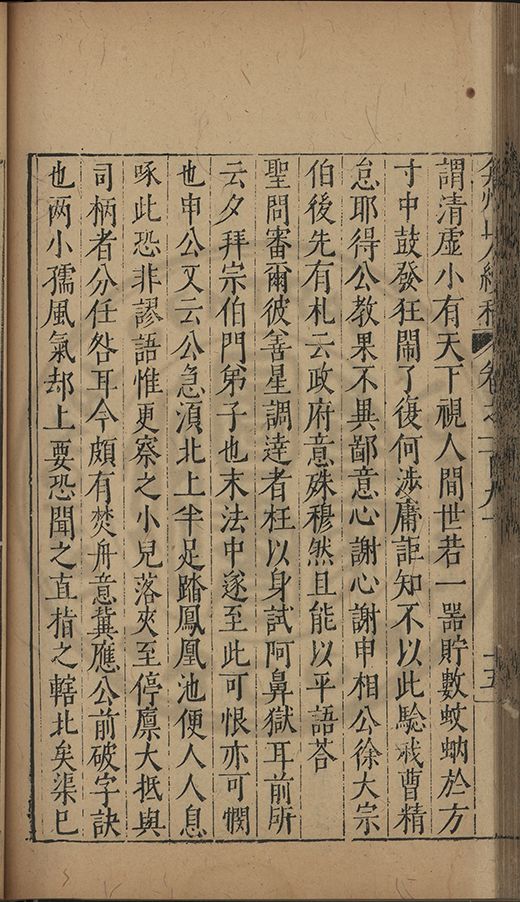 弇州山人續稿 卷之一百九十 十五
謂清虛小有天下視人間世若一器貯數蚊蚋於方
寸中鼓發狂鬧了復何涉庸詎知不以此驗我曹精
怠耶得公教果不異鄙意心謝心謝申相公徐大宗
伯後先有札云政府意殊穆然且能以平語荅
聖問審爾彼善星調達者枉以身試阿鼻獄耳前所
云夕拜宗伯門弟子也末法中遂至此可恨亦可憫
也申公又云公急湏北上半足踏鳳凰池便人人息
啄此恐非謬語惟更察之小兒落夾至停廪大抵與
司柄者分任咎耳今頗有焚舟意冀應公前破字訣
也兩小孺風氣却上要恐聞之直指之轄北矣渠已